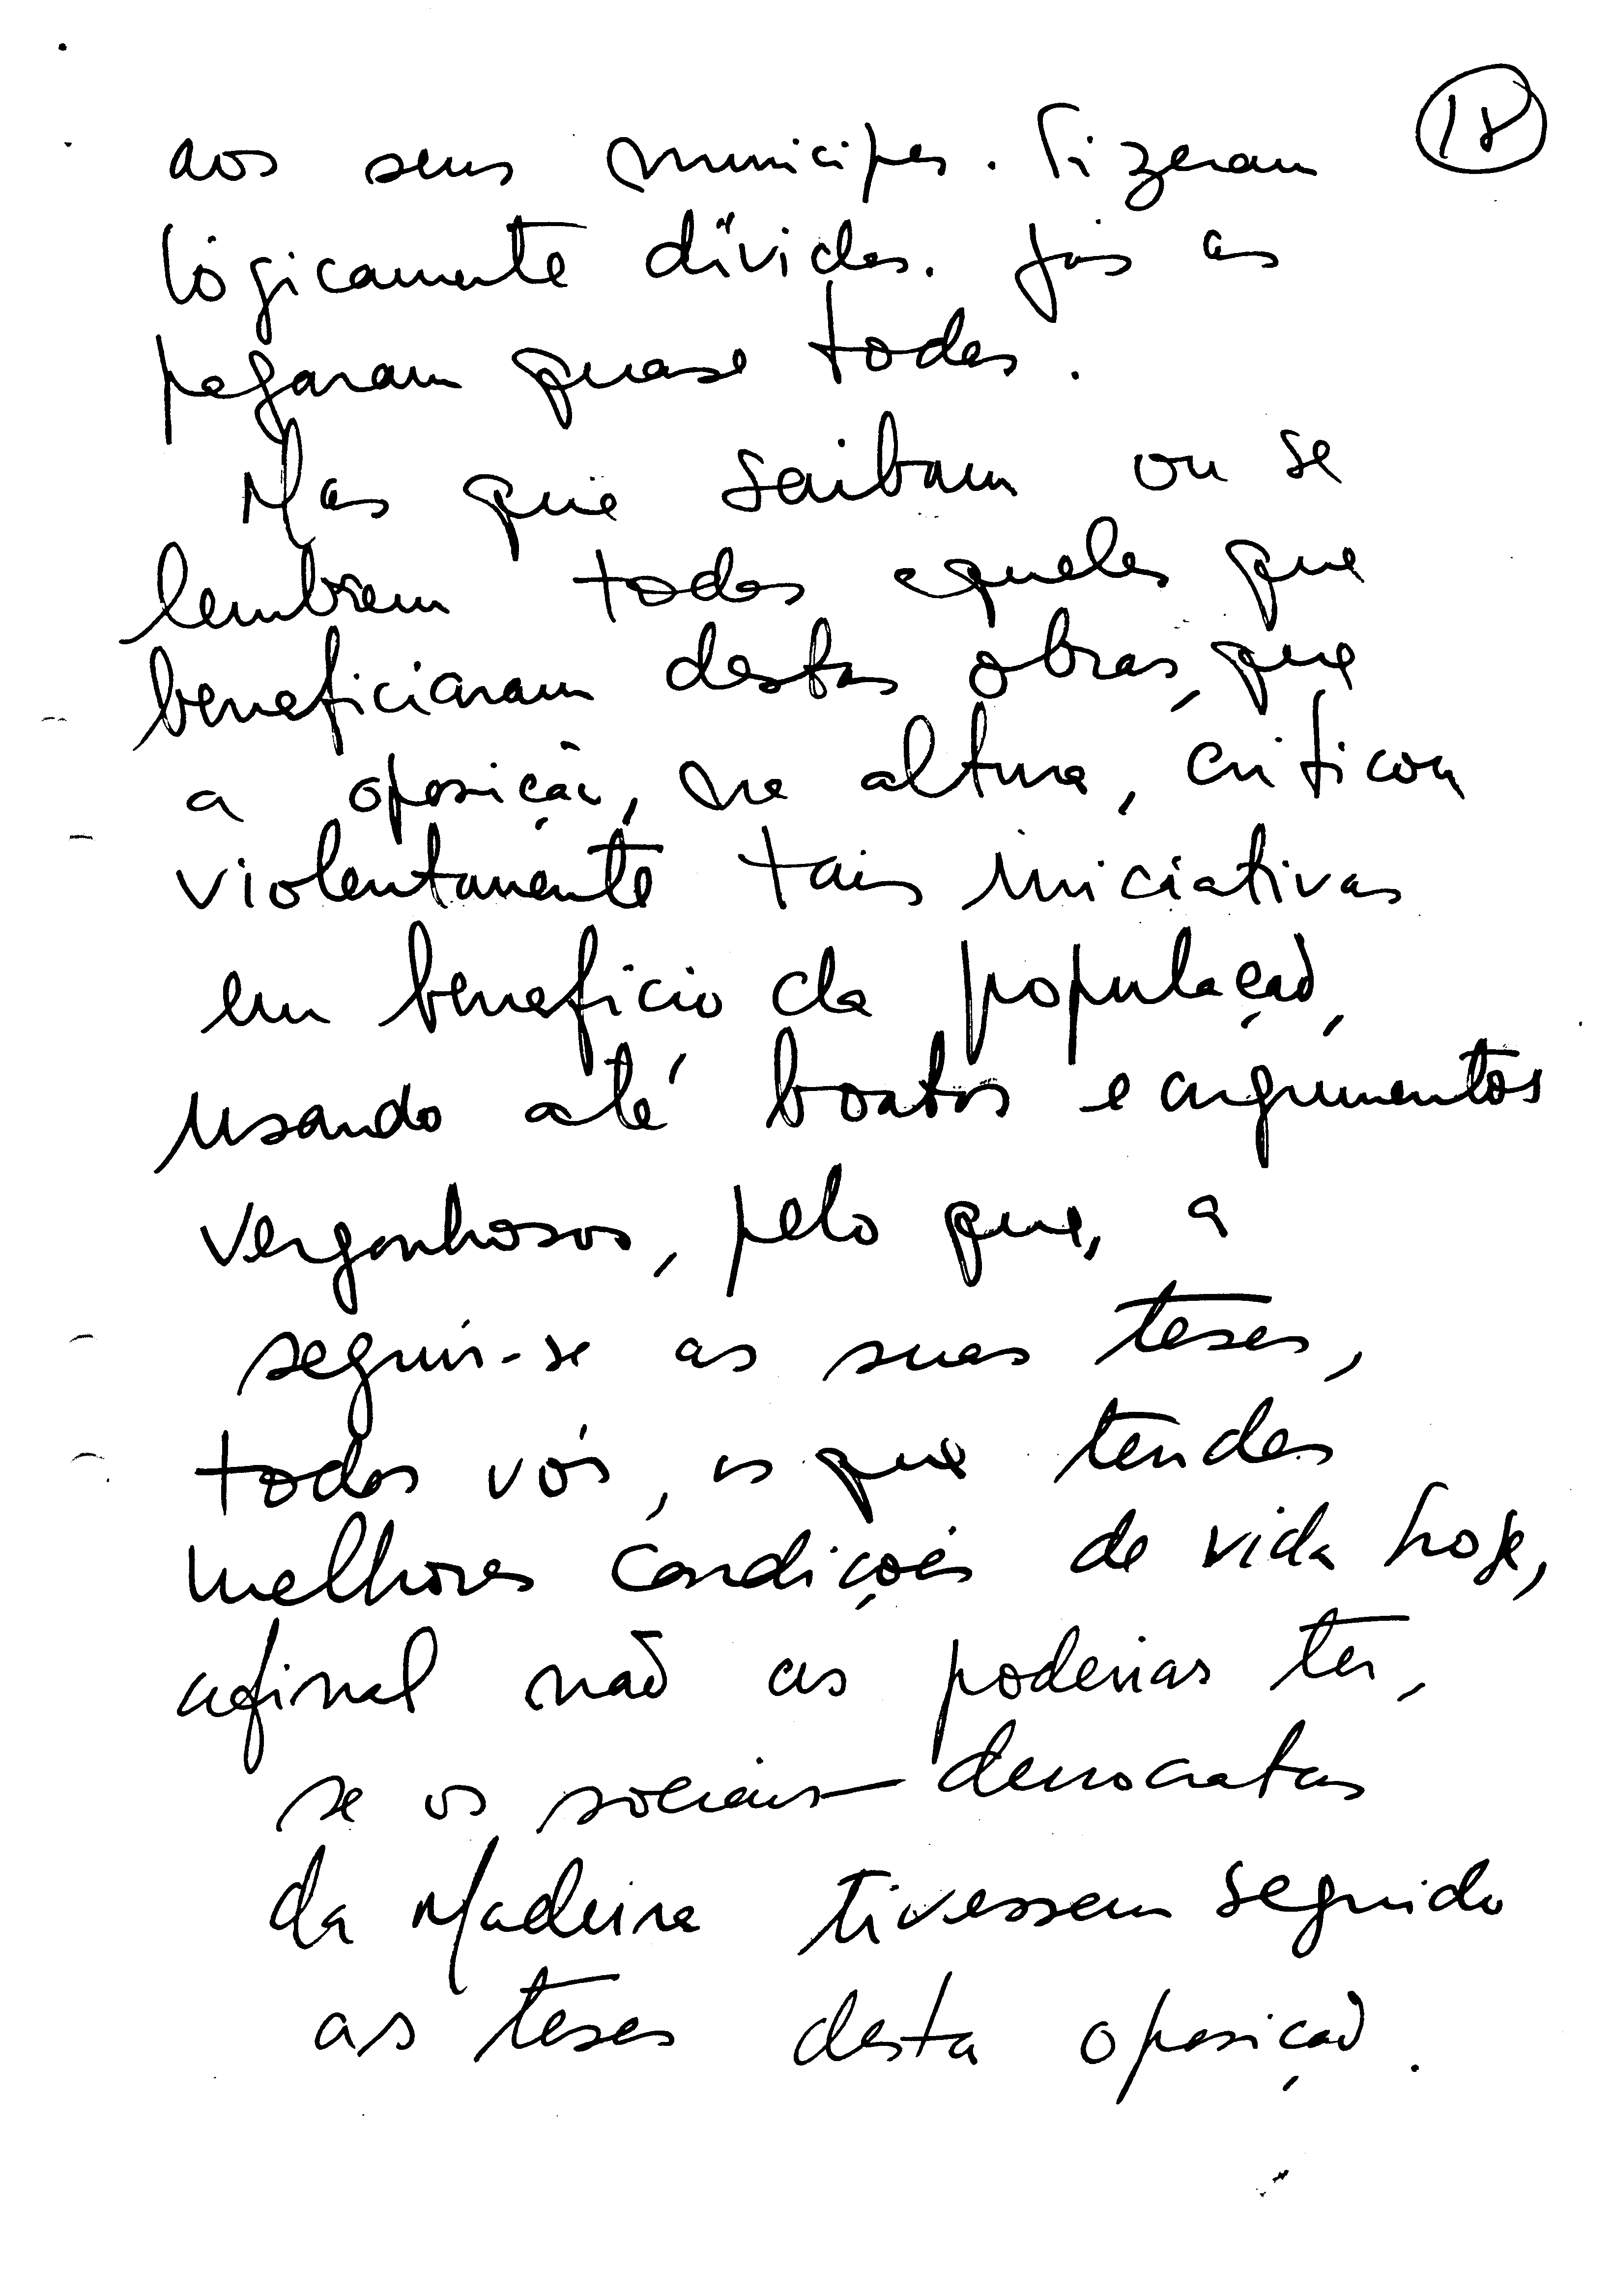 18
aos seus munícipes. Fizeram
lógicamente dívidas. Já as
pagaram quase todas.
Mas que saibam ou se
lembrem todos aqueles que
beneficiaram destas obras, que
a oposição, na altura, criticou
violentamente tais iniciativas
em benefício da população,
usando até boatos e argumentos
vergonhosos, pelo que, a
seguir-se as suas teses,
todos vós, os que tendes
melhores condições de vida hoje,
afinal não as poderias ter,
se os sociais-democratas
da Madeira tivessem seguido
as teses desta oposição.